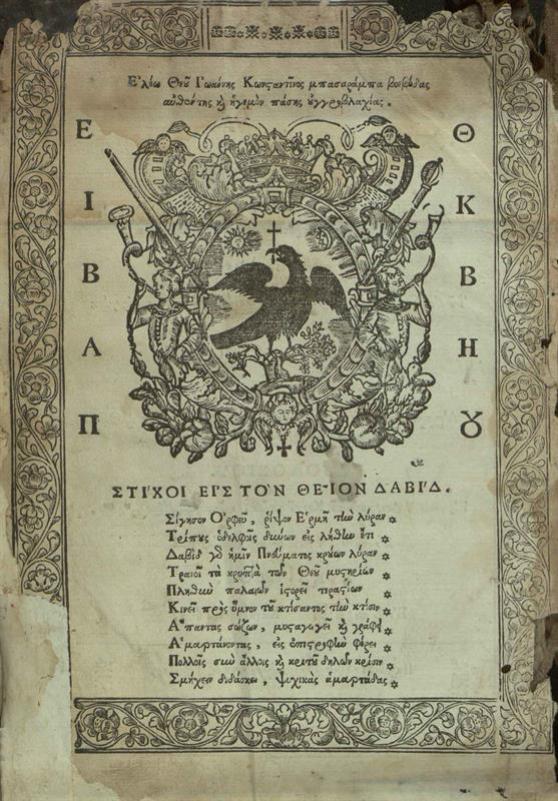 Ἐλέῳ Θεοῦ Ἰωάννης Κωνσταντῖνος μπασαράμπα βοεβόδας
αὐθέντης κ̀ ἡγεμὼν πάσης οὐγγροβλαχίας.
Ε Θ
Ι Κ
Β Β
Α Η
Π Ȣ
ΣΤΙΧΟΙ ΕΙΣ ΤΟΝ ΘΕΙΟΝ ΔΑΒΙΔ.
Σίγησον Ὀρφεῦ, ῥίψον Ἑρμῆ τὴν λύραν
Τρίπους ὁ Δελφοῖς δύνον εἰς λήθην ἔτι
Δαβὶδ γὸ ἡμῖν Πνεύματος κρούων λύραν
Τρανοῖ τὰ κρυπτὰ τῶν Θεοῦ μυστηρίων
Πληθὺν παλαιῶν ἱστορεῖ τεραστίων
Κινεῖ πρὸς ὕμνον τοῦ κτίσαντος τὴν κτίσιν
Ἅπαντας σώζων, μυσταγωγεῖ κ̀ γράφει
Ἁμαρτάνοντας, εἰς ἐπιστροφὴν φέρει
Πολλοῖς σὺν ἄλλοις κ̀ κριτοῦ δηλῶν κρίσιν
Σμήχειν διδάσκει, ψυχικὰς ἁμαρτάδας